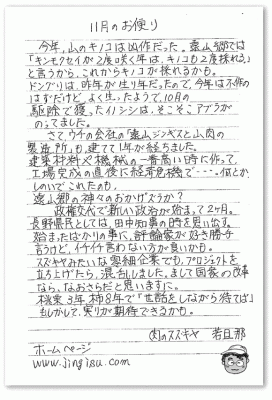 11月のお便り
今年、山のキノコは凶作だった。遠山郷では
「キンモクセイが2度咲く年は、キノコも2度採れる」
と言うから、これからキノコが採れるかも。
ドングリは、昨年が生り年だったので、今年は不作の
はずだけど、よく生ったようで、10月の
駆除で獲ったイノシシは、そこそこアブラが
のってました。
さて、ウチの会社の「遠山ジンギスと山肉の
製造所」も、建てて1年が経ちました。
建築材料や機械の一番高い時に作って、
工場完成の直後に経済危機で‥‥何とか
しのいでこれたのも、
遠山郷の神々のおかげズラか?
政権交代で新しい政治が始まって2ヶ月。
長野県民としては、田中知事の時を思い出す。
始まったばかりの事に、評論家が好き勝手
言うけど、イチイチ言わない方が良いかも。
スズキヤみたいな零細企業でも、プロジェクトを
立ち上げたら、混乱しました。まして国家の改革
なら、なおさらだと思いますに。
桃栗3年柿8年で「世話をしながら待てば」
もしかして、実りが期待できるかも。
肉のスズキヤ 若旦那
ホームページ
www.jingisu.com